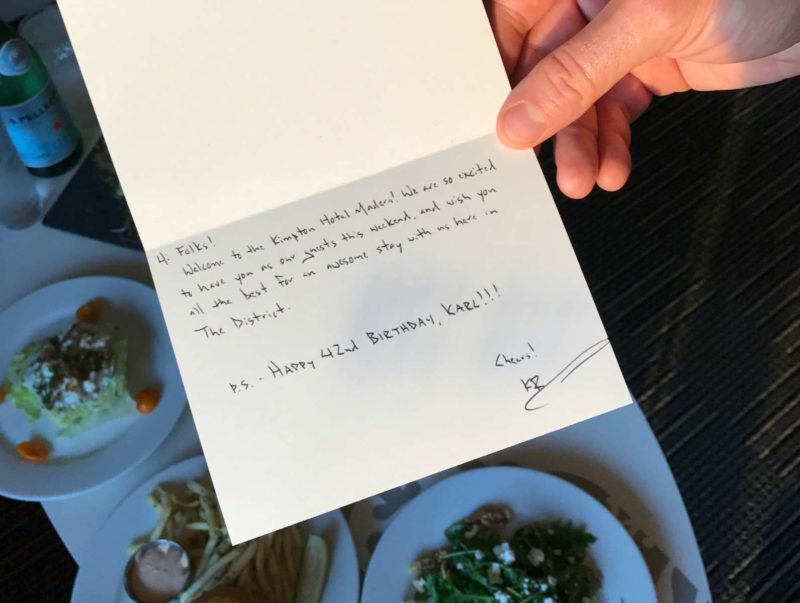 S.PELLEGRINO
4: Folks!
Welcome to the Kimpton Hotel Madera! We are so excited
to have you as our guests this weekend, and wish you
all the best for an awesome stay with us here in
The District.
P.S.. HAPPY 42nd BIRTHDAY, KARL!!!
Cheers!
KB